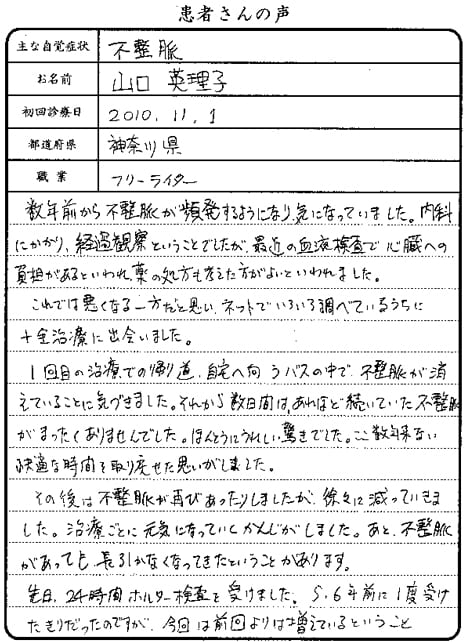 患者さんの声
主な自覚症状 不整脈
お名前 山口 英理子
初回診療日 2010.11.1
都道府県 神奈川県
職業 フリーライター
数年前から不整脈が頻発するようになり、気になっていました。内科
にかかり、経過観察ということでしたが、最近の血液検査で心臓への
負担があるといわれ、薬の処方も考えた方がよいといわれました。
これでは悪くなる一方だと思い、ネットでいろいろ調べているうちに
十全治療に出会いました。
1回目の治療での帰り道、自宅へ向うバスの中で、不整脈が消
えていることに気づきました。それから数日間は、あれほど続いていた不整脈
がまったくありませんでした。ほんとうにうれしい驚きでした。ここ数年来ない
快適な時間を取り戻せた思いがしました。
その後は不整脈が再びあったりしましたが、徐々に減っていきま
した。治療ごとに元気になっていくかんじがしました。あと、不整脈
があっても、長引かなくなってきたということがあります。
先日、24時間ホルター検査を受けました。5、6年前に1度受け
たきりだったのですが、今回は前回よりは増えているということ